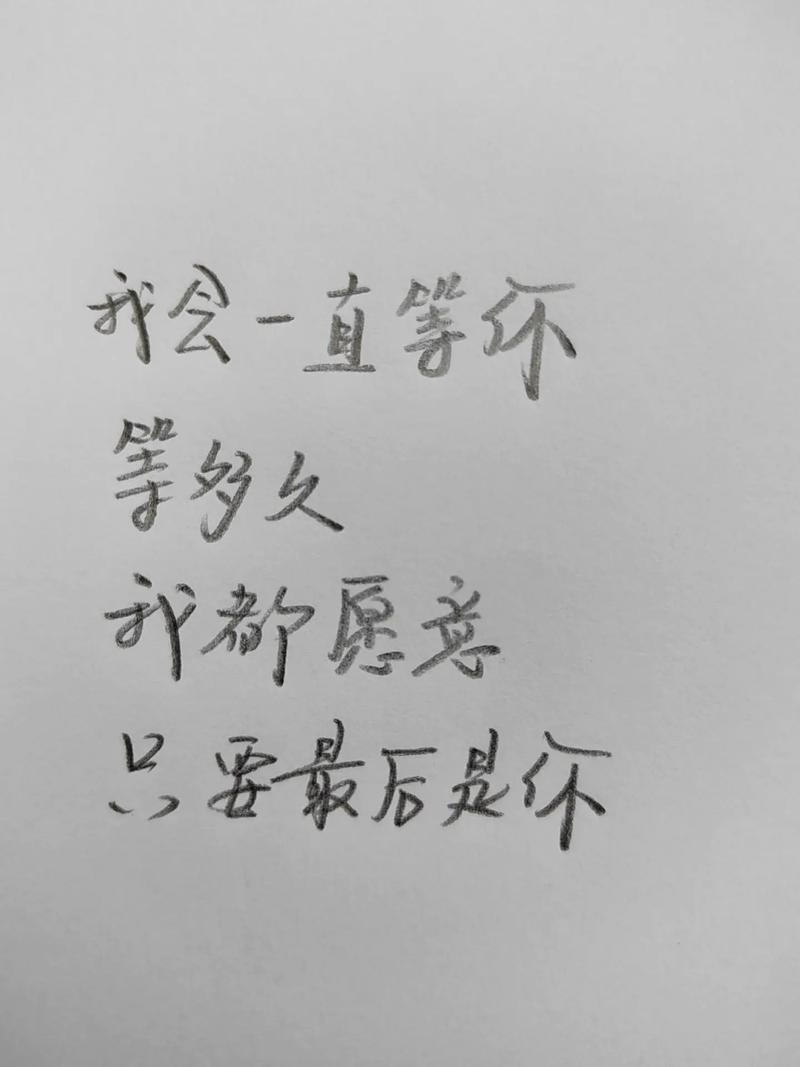 我会一直等你
等多久
我都愿意
只要最后是你